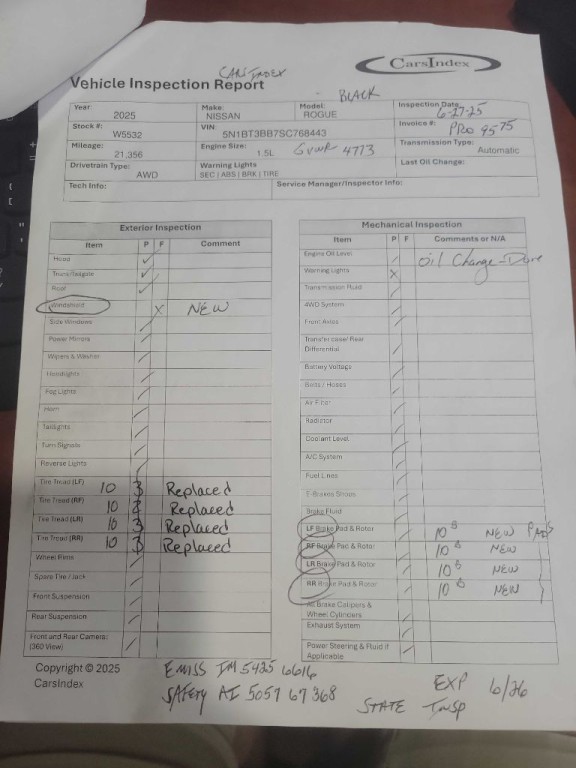 CarsIndex
CARSINDEX
Vehicle Inspection Report
BLACK
Year 2025 Make: NISSAN Model: ROGUE Inspection Date: 6-27-25
Stock #: W5532 VIN: 5N1BT3BB7SC768443 Invoice #: PRO 9575
Mileage: 21,356 Engine Size: 1.5L GVWR 4773 Transmission Type: Automatic
Drivetrain Type: AWD Warning Lights SEC | ABS | BRK | TIRE Last Oil Change:
Tech Info: Service Manager/Inspector Info:
Exterior Inspection
Item P F Comment
Hood ✓
Trunk/Tailgate ✓
Roof ✓
Windshield X NEW
Side Windows
Power Mirrors
Wipers & Washer
Headlights
Fog Lights
Horn
Taillights
Turn Signals
Reverse Lights
Tire Tread (LF) 10 3 Replaced
Tire Tread (RF) 10 Replaced
Tire Tread (LR) 10 3 Replaced
Tire Tread (RR) 10 3 Replaced
Wheel
Spare Tire / Jack
Front Suspension
Rear Suspension
Front and Rear Camera:
(360 View)
Mechanical Inspection
Item P F Comments or N/A
Engine Oil Level Oil Change - Done
Warning Lights X
Transmission Fluid
4WD System
Front Axles
Transfer case/ Rear
Differential
Battery Voltage
Belts / Hoses
Air Filter
Radiator
Coolant Level
A/C System
Fuel Lines
E-Brakes Shoes
Brake Fluid
LF Brake Pad & Rotor 10 NEW PADS
RF Brake Pad & Rotor 10 NEW
LR Brake Pad & Rotor 10 NEW
RR Brake Pad & Rotor 10 NEW
Brake Calipers &
Wheel Cylinders
Exhaust System
Power Steering & Fluid if
Applicable
Copyright © 2025
CarsIndex
EMISS IM 5425 6616
SAFETY AI 5057 67368
EXP 6/26
STATE INSP